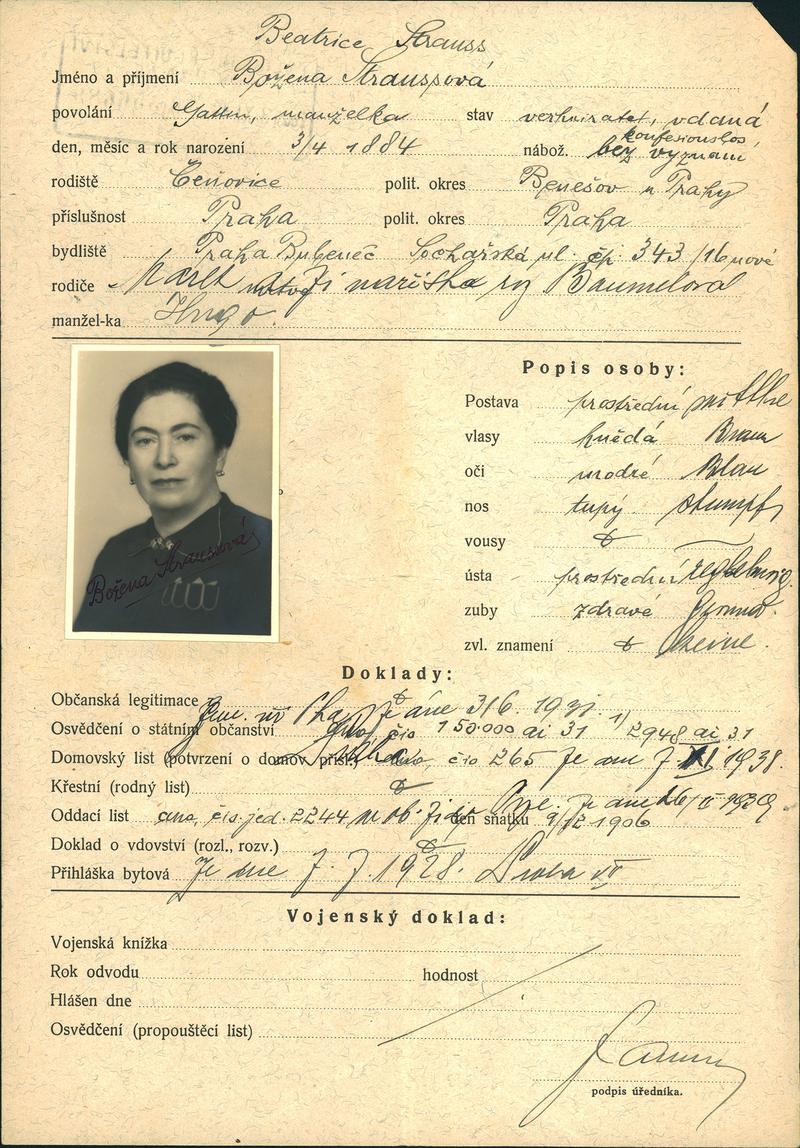 Beatrice Strauss
Jméno a příjmení Božena Straussová
povolání Gattin, manželka stav verheiratet, vdaná
konfesionslos
den, měsíc a rok narození 3/4 1884 nábož. bez vyznání
rodiště Ceňovice polit. okres Benešov u Prahy
příslušnost Praha polit. okres Praha
bydliště Praha Bubeneč Sochařská ul. čp. 343/16 nové
rodiče
manžel-ka Hugo.
Popis osoby:
Postava prostřední mittlere
vlasy hnědá Braun
oči modré Blau
nos tupý stumpf
vousy
ústa prostřední
zuby zdravé Gesund.
zvl. znamení keine.
Božena Straussová
Doklady:
Občanská legitimace
Osvědčení o státním občanství čís 150.000 ai 31 1/2948 ai 31
Domovský list (potvrzení o domov. přísl.) čís 265 Je dne 7. XI. 1938.
Křestní (rodný list)
Oddací list ano, čís. jed. 2244 den sňatku 9/12 1906
Doklad o vdovství (rozl., rozv.)
Přihláška bytová Je dne 7. 7. 1928.
Vojenský doklad:
Vojenská knížka
Rok odvodu hodnost
Hlášen dne
Osvědčení (propouštěcí list)
podpis úředníka.